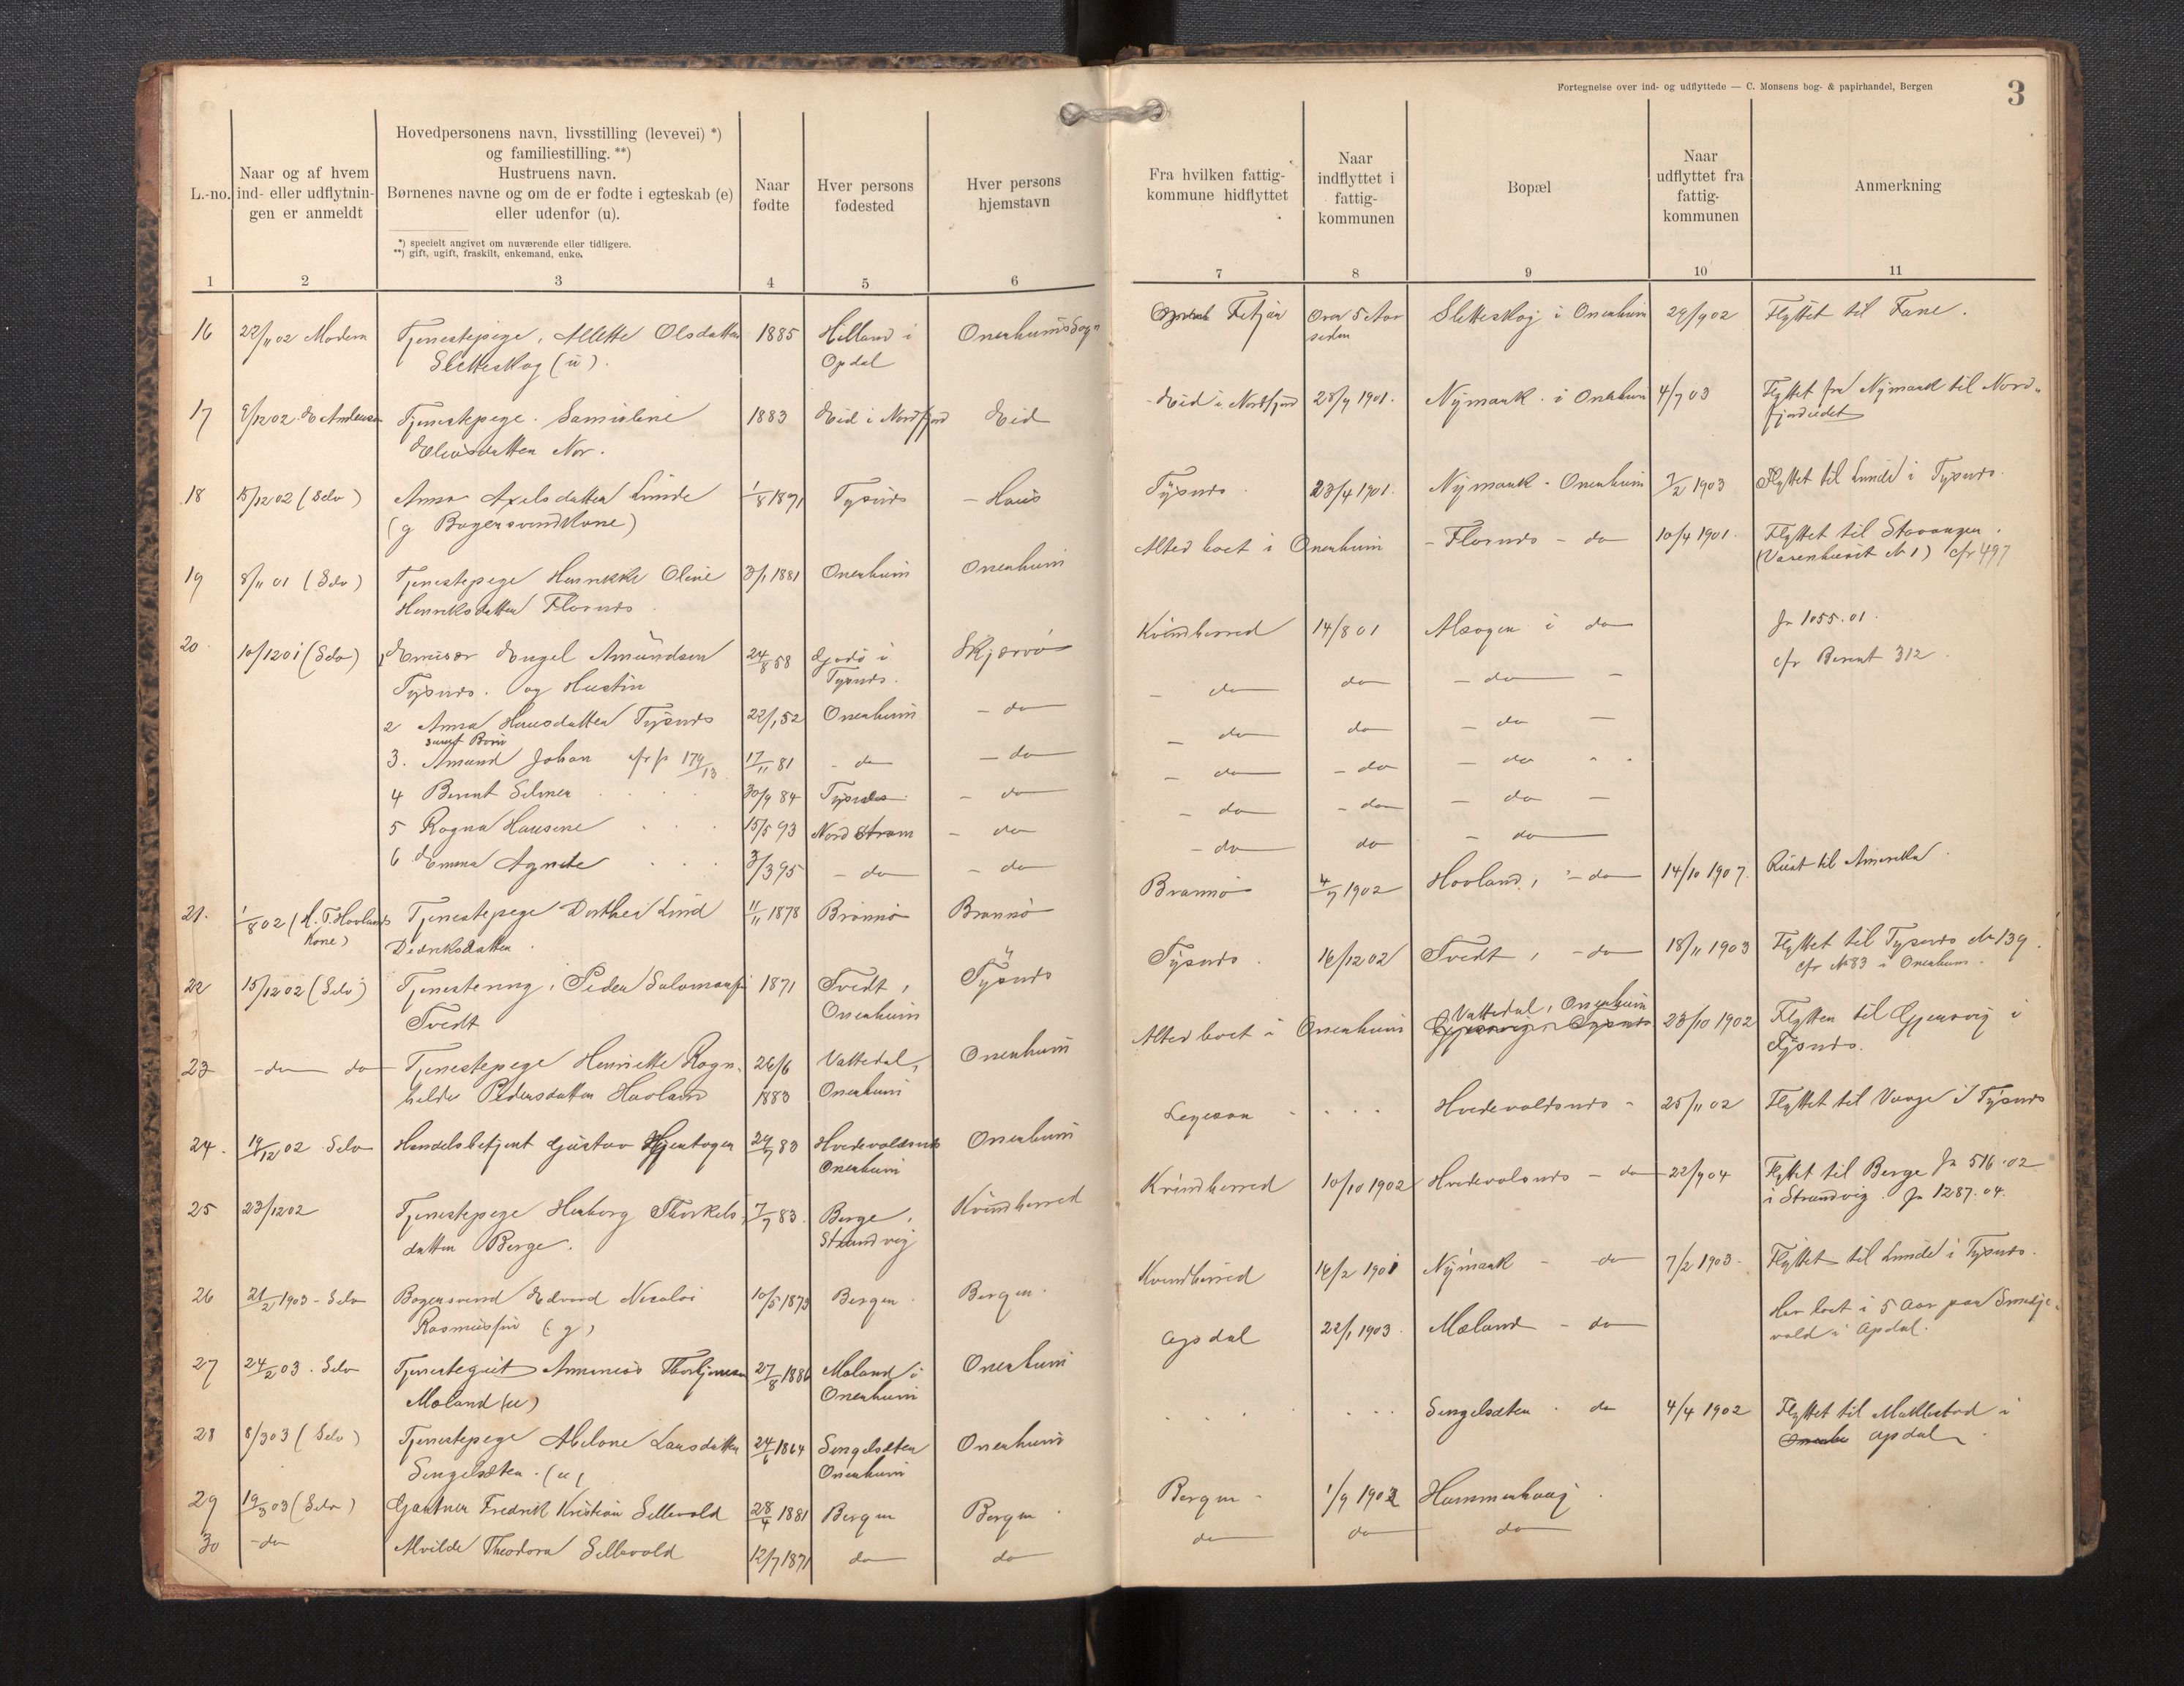 Fortegnelse over ind- og udflyttede — C. Monsens bog- & papirhandel, Bergen
3
L.-no.
Naar og af hvem
ind- eller udflytnin-
gen er anmeldt
Hovedpersonens navn, livsstilling (levevei) *)
og familiestilling. **)
Hustruens navn.
Børnenes navne og om de er fødte i egteskab (e)
eller udenfor (u).
*) specielt angivet om nuværende eller tidligere.
**) gift, ugift, fraskilt, enkemand, enke.
Naar
fødte
Hver persons
fødested
Hver persons
hjemstavn
Fra hvilken fattig-
kommune hidflyttet
Naar
indflyttet i
fattig-
kommunen
Bopæl
Naar
udflyttet fra
fattig-
kommunen
Anmerkning
1 2 3 4 5 6 7 8 9 10 11
16 22/11 02 Modern Tjenestepige, Allette Olsdatter 1885 Helland i Onarheimsogn Fitjar Over 5 Aar Sletteskog i Onarheim 29/9 02 Flyttet til Fane.
Sletteskog (u). Opdal siden
17 9/12 02 E Andersen Tjenestepige. 1883 Eid i Nordfjord Eid Eid i Nordfjord 28/9 1901. Nymark i Onarheim 4/7 03 Flyttet fra Nymark til Nord-
Eliasdatter Nor. fjordeidet
18 15/12 02 (Selv) Anna Axelsdatter Lunde 1/8 1871 Tysnes - Haus Tysnes 23/4 1901. Nymark - Onarheim 7/2 1903 Flyttet til Lunde i Tysnes.
(g Bagersvendkone)
19 8/11 01 (Selv) Tjenestepige Henrikke Oline 3/1 1881 Onarheim Onarheim Altid boet i Onarheim - Flornes - do 10/4 1901. Flyttet til Stavanger.
Henriksdatter Flornes (Varenhuset No 1) cfr 497
20 10/12 01 (Selv) Engel Amundsen 24/8 58 Gjøde i Skjervø Kvindherred 14/8 01 Alsagen i do Jr 1055.01.
Tysnes. og Hustru Tysnes. cfr Berent 312.
2 Anna Hansdatter Tysnes 22/1 52 Onarheim - do - do do - do -
samt Børn
3. Amund Johan cfr p 179/13 17/11 81 - do - do - do do - do -
4 Berent Selmer 30/9 84 Tysnes - do - do - do - do
5 Ragna Hansine 15/5 93 Nordstrøm - do - do - do - do -
6 Emma Agnete 3/3 95 - do - do - do do - do
21. 1/8 02 (H. T. Hovlands Tjenestepige Dorthei Lind 11/11 1878 Brønnø Brønnø Brønnø 4/7 1902 Hovland, - do 14/10 1907. Reist til Amerika.
Kone) Didriksdatter
22 15/12 02 (Selv) Tjenestereng, Peder Salomonsen 1871 Tvedt, Tysnes Tysnes. 16/12 02 Tvedt, - do 18/11 1903 Flyttet til Tysnes No 139.
Tvedt Onarheim cfr No 83 i Onarheim.
23 - do do Tjenestepige Henriette Ragn- 26/6 Vattedal, Onarheim Altid boet i Onarheim Vattedal, Onarheim 23/10 1902 Flytter til Gjersvig i
hilde Pedersdatter Havland 1883 Onarheim Gjersvig i Tysnes Tysnes.
24. 19/12 02 Selv Handelsbetjent Gustav 29/7 83 Hvedevoldsnes Onarheim Hvedevoldsnes - 25/11 02 Flyttet til Vaage i Tysnes
Onarheim
25 23/12 02 Tjenestepige Herborg Thorkels- 7/7 83. Berge, Kvindherred Kvindherred 10/10 1902 Hvedevolsnes - do 22/9 04 Flyttet til Berge Jr 516.02
datter Berge. Strandvig i Strandvig. Jr 1287.04.
26 21/2 1903 - Selv Bagersvend Edvard Nicolai 10/5 1873 Bergen Bergen. Kvindherred 16/2 1901 Nymark - do 7/2 1903. Flyttet til Lunde i Tysnes.
Rasmussen (g)
27 24/2 03. Selv Tjenestegut 27/8 1886 Mæland i Onarheim Opdal 22/1 1903. Mæland - do Har boet i 5 Aar paa
Mæland (u) Onarheim vold i Opdal.
28 8/3 03 (Selv) Tjenestepige Abelone Larsdatter 24/6 1864 Singelsæter Onarheim Singelsæter. do 4/4 1902 Flyttet til
Singelsæter. (u) Onarheim Opdal
29 19/3 03 (Selv) Gartner Fredrik Kristian Sellevold 28/4 1881 Bergen Bergen Bergen - 1/9 1902 Hammerhaug
30 - do Alvilde Theodora Sellevold 12/7 1871 do do do do do